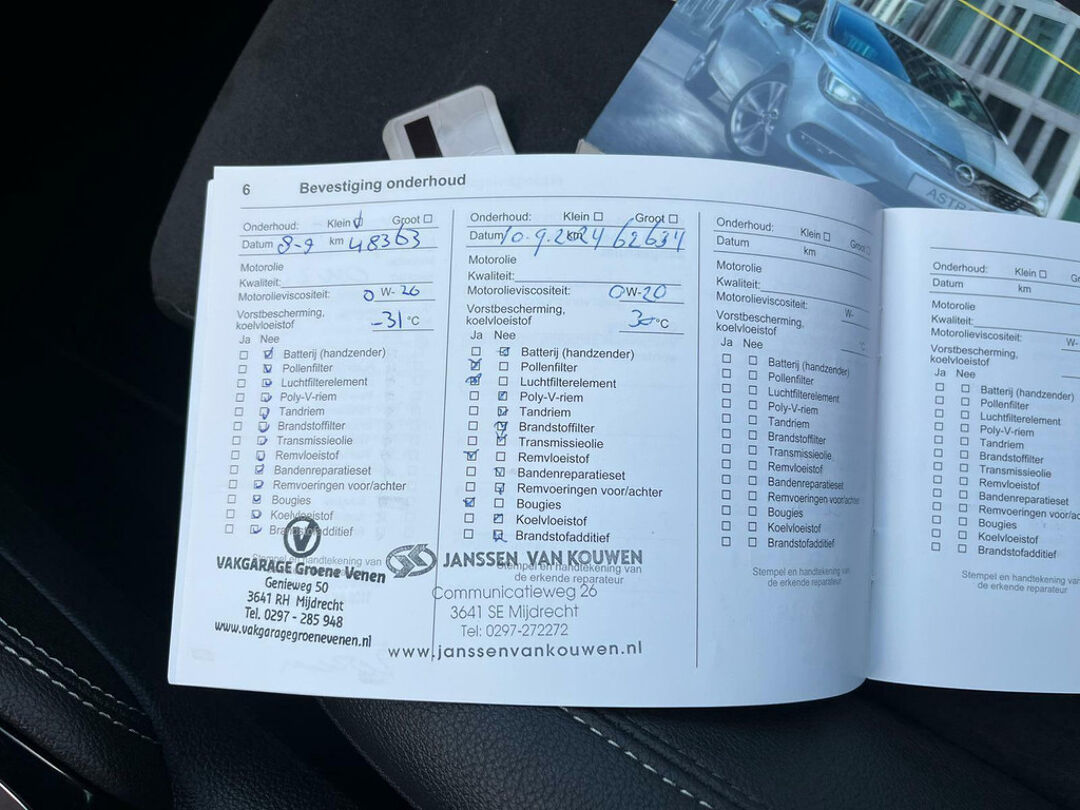 6 Bevestiging onderhoud
Onderhoud: Klein Groot
Datum 8-9 km 48363
Motorolie
Kwaliteit:
Motorolieviscositeit: 0 W- 20
Vorstbescherming,
koelvloeistof -31 °C
Ja Nee
Batterij (handzender)
Pollenfilter
Luchtfilterelement
Poly-V-riem
Tandriem
Brandstoffilter
Transmissieolie
Remvloeistof
Bandenreparatieset
Remvoeringen voor/achter
Bougies
Koelvloeistof
Brandstofadditief
Stempel en handtekening van
VAKGARAGE Groene Venen
Genieweg 50
3641 RH Mijdrecht
Tel. 0297 - 285 948
www.vakgaragegroenevenen.nl
Onderhoud: Klein Groot
Datum 10.9.2024 km 62634
Motorolie
Kwaliteit:
Motorolieviscositeit: 0W-20
Vorstbescherming,
koelvloeistof 30 °C
Ja Nee
Batterij (handzender)
Pollenfilter
Luchtfilterelement
Poly-V-riem
Tandriem
Brandstoffilter
Transmissieolie
Remvloeistof
Bandenreparatieset
Remvoeringen voor/achter
Bougies
Koelvloeistof
Brandstofadditief
JANSSEN VAN KOUWEN
Stempel en handtekening van
de erkende reparateur
Communicatieweg 26
3641 SE Mijdrecht
Tel: 0297-272272
www.janssenvankouwen.nl
Onderhoud: Klein Groot
Datum km
Motorolie
Kwaliteit:
Motorolieviscositeit: W-
Vorstbescherming,
koelvloeistof °C
Ja Nee
Batterij (handzender)
Pollenfilter
Luchtfilterelement
Poly-V-riem
Tandriem
Brandstoffilter
Transmissieolie
Remvloeistof
Bandenreparatieset
Remvoeringen voor/achter
Bougies
Koelvloeistof
Brandstofadditief
Stempel en handtekening van
de erkende reparateur
Onderhoud: Klein
Datum km
Motorolie
Kwaliteit:
Motorolieviscositeit: W-
Vorstbescherming,
koelvloeistof
Ja Nee
Batterij (handzender)
Pollenfilter
Luchtfilterelement
Poly-V-riem
Tandriem
Brandstoffilter
Transmissieolie
Remvloeistof
Bandenreparatieset
Remvoeringen voor/ac
Bougies
Koelvloeistof
Brandstofadditief
Stempel en handtekening van
de erkende reparateur
ASTR